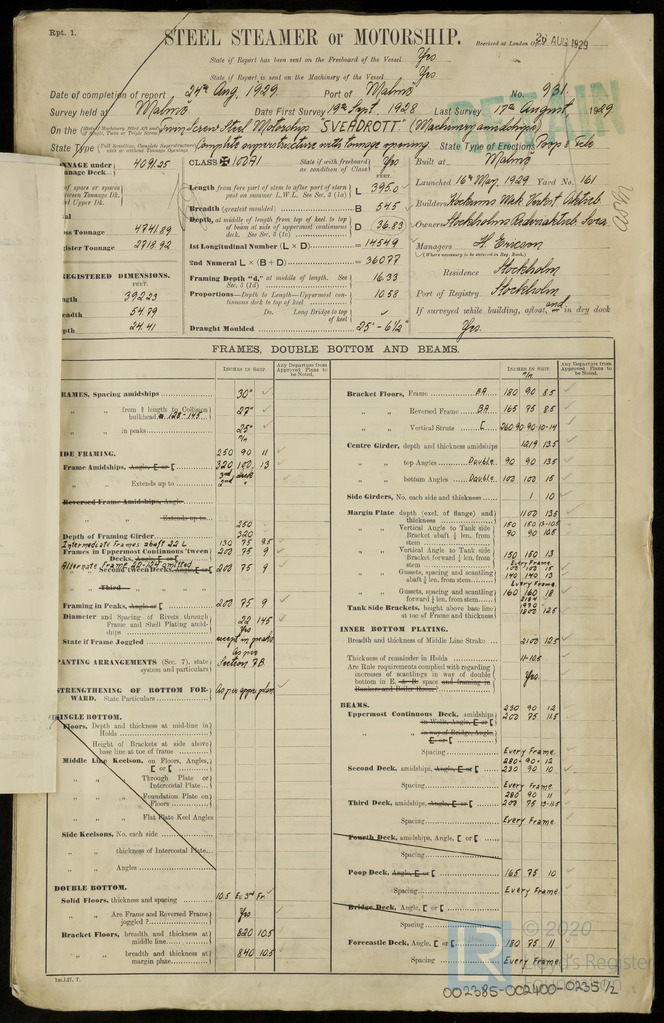 Rpt. 1.
STEEL STEAMER or MOTORSHIP.
Received at London Office
26 AUG 1929
State if Report has been sent on the Freeboard of the Vessel Yes
State if Report is sent on the Machinery of the Vessel Yes
Date of completion of report 24th Aug. 1929. Port of Malmö No. 931.
Survey held at Malmö Date First Survey 19th Sept. 1928 Last Survey 17th August, 1929
On the Twin Screw Steel Motorship "SVEADROTT" (Machinery amidships)
State Type Complete superstructure with tonnage opening State Type of Erections Poop & Fcle
TONNAGE under Tonnage Deck 4091.25
CLASS ✠ 100A1 State if with freeboard as condition of Class Yes
Built at Malmö
Launched 16th May 1929 Yard No. 161
Builders Kockums Mek. Verkst. Aktieb.
Owners Stockholms Rederiaktieb. Svea
Managers H. Ericson
(Where necessary to be entered in Reg. Book.)
Residence Stockholm
Port of Registry Stockholm
If surveyed while building, afloat, and in dry dock
Yes.
Gross Tonnage 4741.89
Register Tonnage 2718.92
REGISTERED DIMENSIONS.
FEET.
Length 392.23
Breadth 54.79
Depth 24.41
Length from fore part of stem to after part of stern post on summer L.W.L. See Sec. 3 (1a) L 395.0
Breadth (greatest moulded) B 54.5
Depth, at middle of length from top of keel to top of beam at side of uppermost continuous deck. See Sec. 3 (1c) D 36.83
1st Longitudinal Number (L × D) = 14549
2nd Numeral L × (B + D) = 36077
Framing Depth "d," at middle of length. See Sec. 3 (1d) 16.33
Proportions—Depth to Length—Uppermost continuous deck to top of keel 10.58
Do. Long Bridge to top of keel
Draught Moulded 25'-6½"
FRAMES, DOUBLE BOTTOM AND BEAMS.
INCHES IN SHIP.
Any Departure from Approved Plans to be Noted.
FRAMES, Spacing amidships 30"
" " from ⅗ length to Collision bulkhead 27"
" " in peaks 25"
SIDE FRAMING. 250 90 11
Frame Amidships, Angle, E or [ 320 100 13
" " Extends up to
Reversed Frame Amidships, Angle
" " Extends up to
250
Depth of Framing Girder 320
Intermediate Frames abaft 22 L 130 75 9.5
Frames in Uppermost Continuous 'tween Decks, Angle, E or [ 203 75 9
Alternate frame omitted
Second 'tween Decks, Angle, E or [ 203 75 9
" Third " "
Framing in Peaks, Angle or [ 203 75 9
Diameter and Spacing of Rivets through Frame and Shell Plating amidships 22 145
State if Frame Joggled Yes except in peaks
PANTING ARRANGEMENTS (Sec. 7), state system and particulars as per Section 7B
STRENGTHENING OF BOTTOM FORWARD. State Particulars As per appr. plan
SINGLE BOTTOM.
Floors, Depth and thickness at mid-line in Holds
Height of Brackets at side above base line at toe of frame
Middle Line Keelson, on Floors, Angles, [ or [
" " Through Plate or Intercostal Plate
" " Foundation Plate on Floors
" " Flat Plate Keel Angles
Side Keelsons, No. each side
" " thickness of Intercostal Plate
" " Angles
DOUBLE BOTTOM.
Solid Floors, thickness and spacing 10.5 Ev. 3rd Fr.
" " Are Frame and Reversed Frame joggled ? Yes
Bracket Floors, breadth and thickness at middle line 820 10.5
" " breadth and thickness at margin plate 840 10.5
INCHES IN SHIP.
Any Departure from Approved Plans to be Noted.
Bracket Floors, Frame BA 180 90 8.5
" " Reversed Frame BA 165 75 8.5
" " Vertical Struts [ 260 90 10-14
Centre Girder, depth and thickness amidships 1219 13.5
" " top Angles Double 90 90 13.5
" " bottom Angles Double 100 100 15
Side Girders, No. each side and thickness 1 10
Margin Plate depth (excl. of flange) and thickness 1100 13.5
" " Vertical Angle to Tank side Bracket abaft ⅕ len. from stem 90 90 10.5
" " Vertical Angle to Tank side Bracket forward ⅕ len. from stem 150 150 13
Every Frame
" " Gussets, spacing and scantling abaft ⅕ len. from stem 140 140 13
Every Frame
" " Gussets, spacing and scantling forward ⅕ len. from stem 160 160 18
Tank Side Brackets, height above base line at toe of Frame and thickness 1800 12.5
INNER BOTTOM PLATING.
Breadth and thickness of Middle Line Strake 2100 12.5
Thickness of remainder in Holds 11-10.5
Are Rule requirements complied with regarding increases of scantlings in way of double bottom in E. & B. space and framing in Bunkers and Boiler Room? Yes.
BEAMS.
Uppermost Continuous Deck, amidships in Wells, Angle, E or [ 230 90 12
203 75 11.5
" " in way of Bridge, Angle, E or [
" " Spacing Every Frame
Second Deck, amidships, Angle, E or [ 280 90 12
230 90 10
" " Spacing Every Frame
Third Deck, amidships, Angle, E or [ 280 90 11
203 75 11.5
" " Spacing Every Frame
Fourth Deck, amidships, Angle, [ or [
" " Spacing
Poop Deck, Angle, E or [ 165 75 10
" " Spacing Every Frame
Bridge Deck, Angle, [ or [
" " Spacing
Forecastle Deck, Angle, [ or [ 180 75 11
" " Spacing Every Frame
© 2020
LR
Lloyd's Register
Foundation
002385-002400-0235 1/2